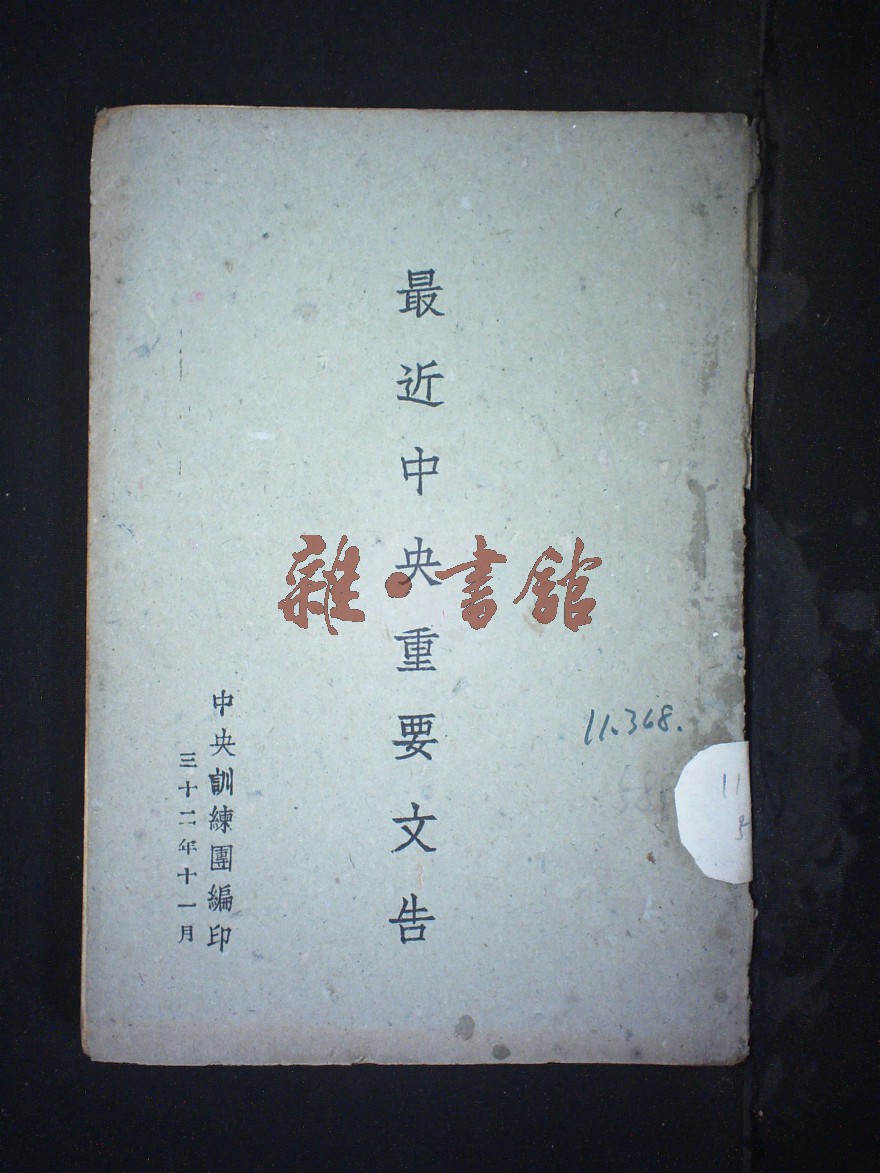 最近中央重要文告
雜·書館
11.368.
11
中央訓練團編印
三十二年十一月